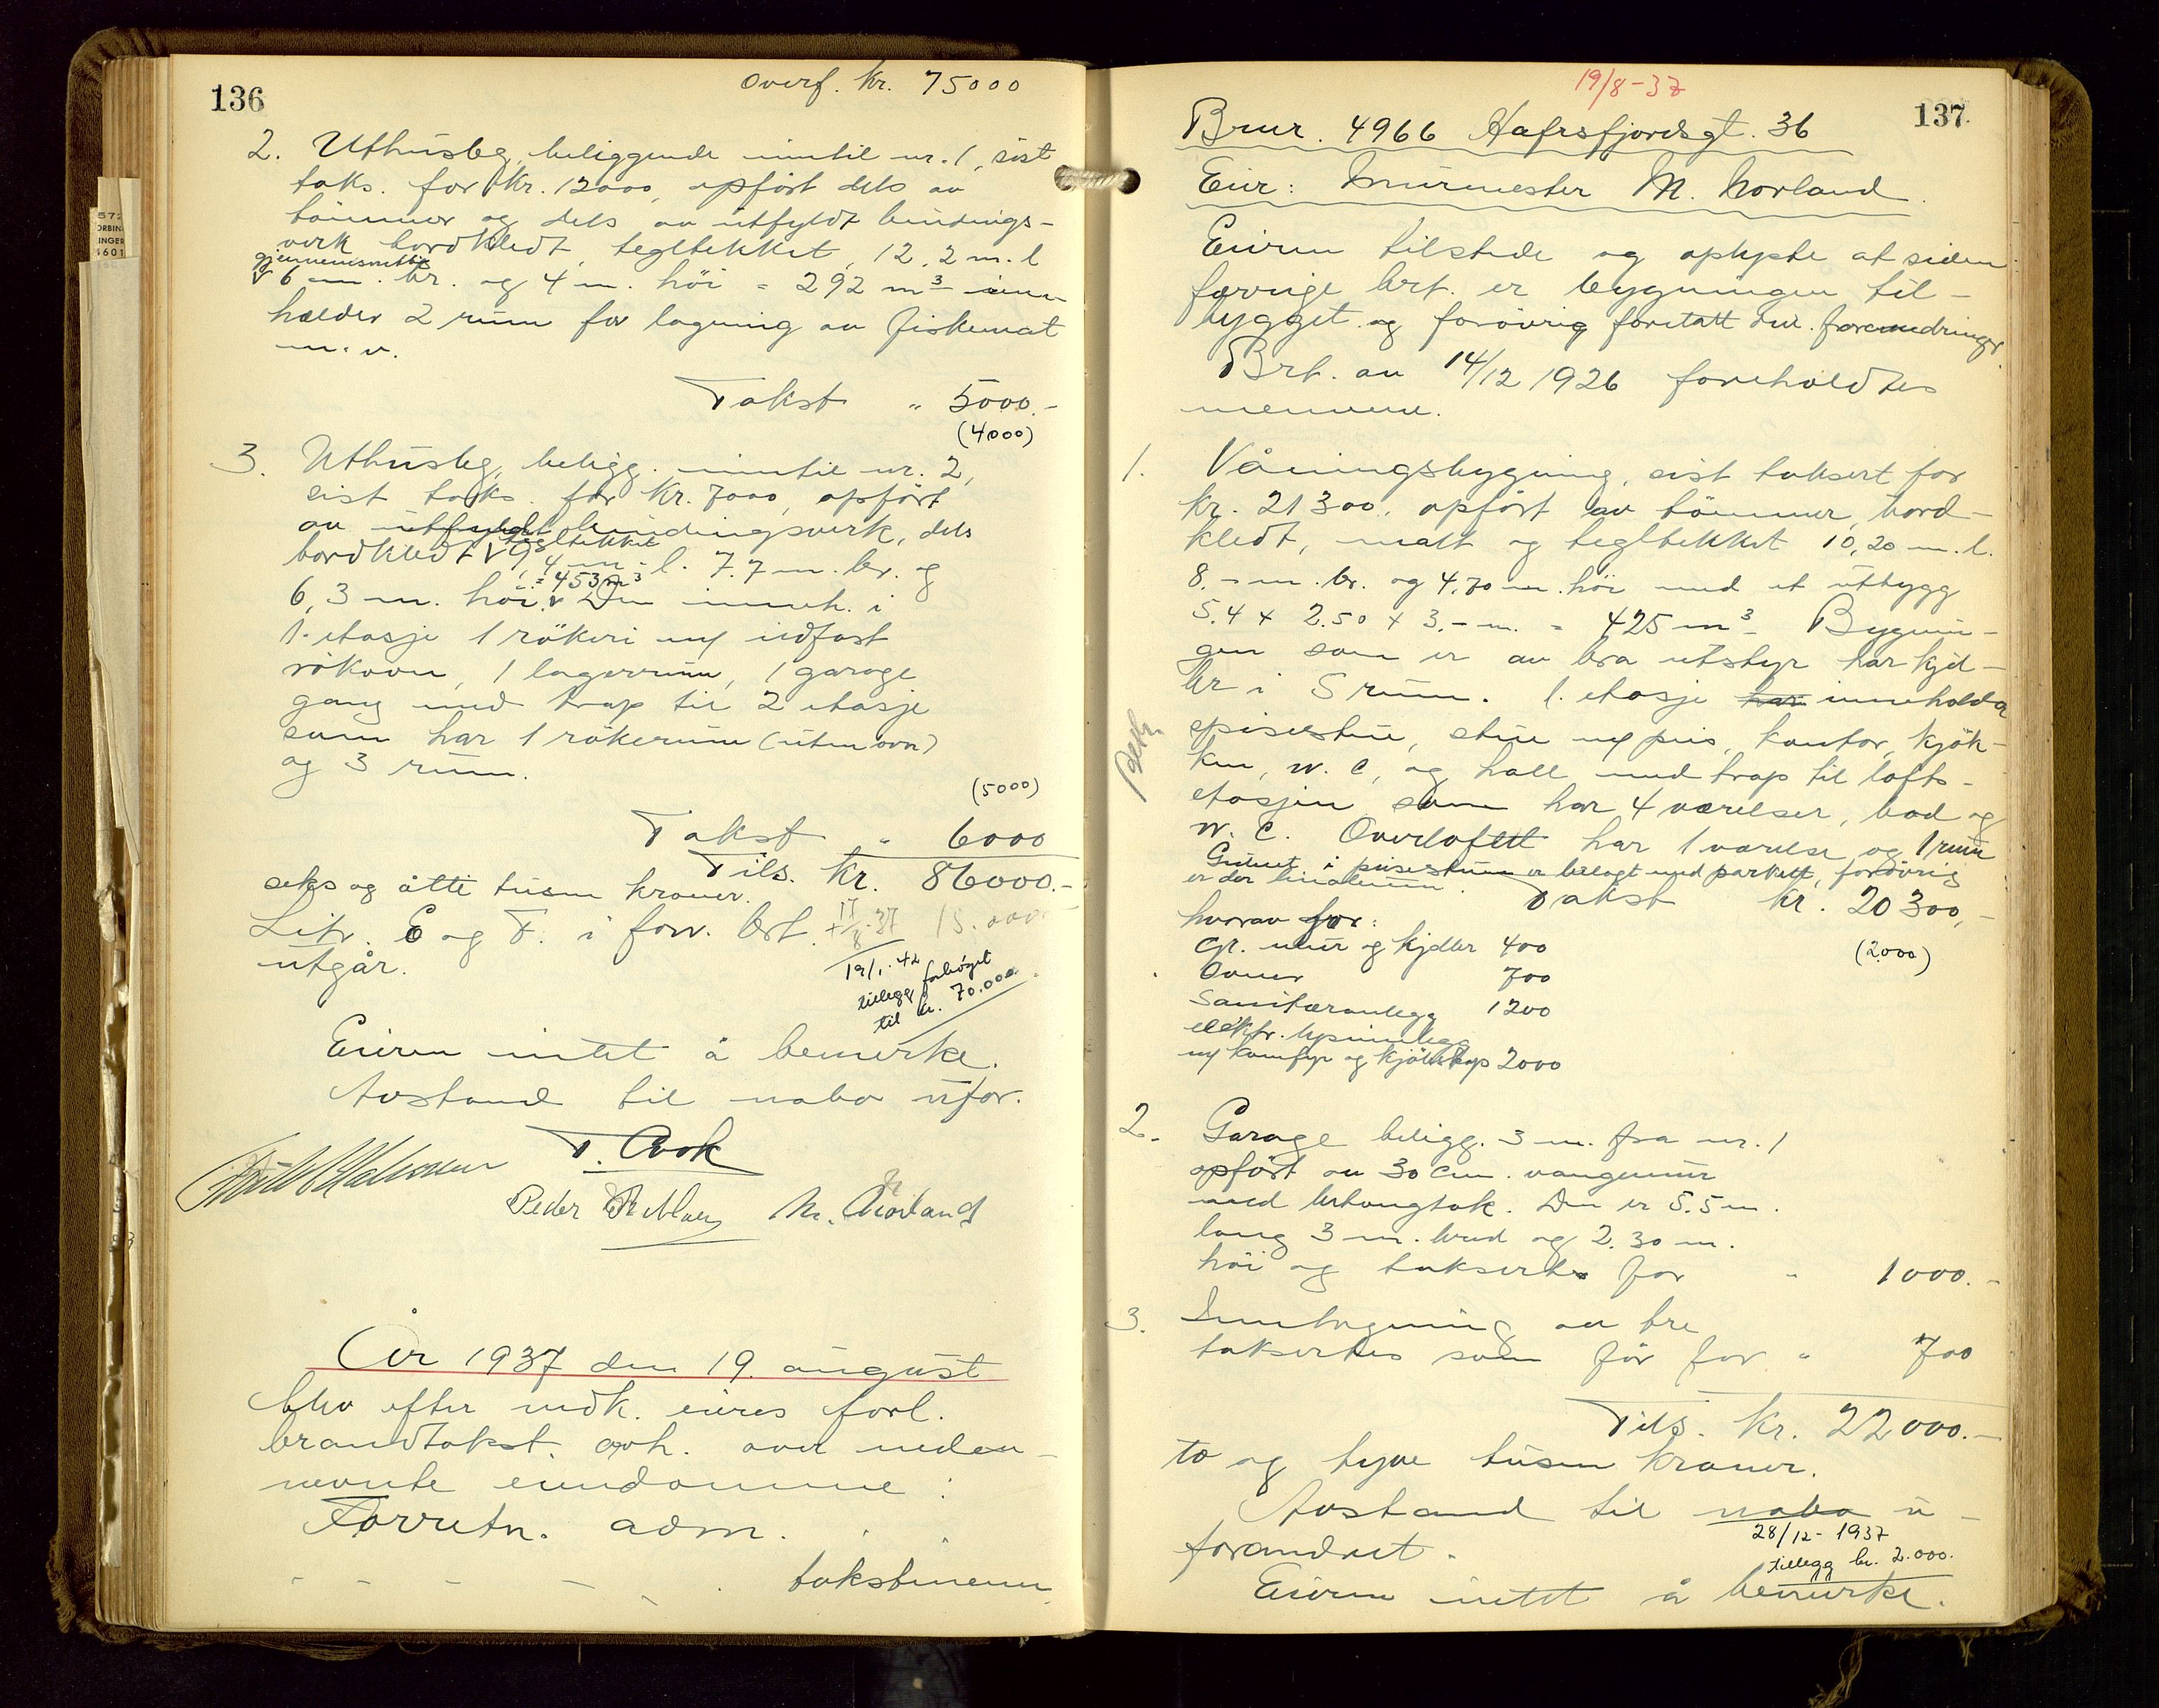 136
Overf. kr. 75000
2. Uthusbg. beliggende inntil nr. 1, sist
taks. for kr. 12000, opført dels av
tømmer og dels av utfyldt bindings-
verk bordkledt, tegltekket, 12,2 m. l.
gjennemsnittlig
6 m. br. og 4 m. høi = 292 m³ inne-
holder 2 rum for lagring av fiskemat
m.v.
Takst " 5000.-
(4000)
3. Uthusbg. beligg. inntil nr. 2,
sist taks. for kr. 7000, opført
av utfyldt bindingsverk, dels
tegltekket
bordkledt 9,4 m. l. 7.7 m. br. og
= 453 m³
6,3 m. høi. Den inneh. i
1. etasje 1 rökeri m/ ildfast
rökovn, 1 lagerrum, 1 garage
gang med trap til 2 etasje
som har 1 rökerum (uten ovn)
og 3 rum.
(5000)
Takst " 6000
Tils. kr. 86000.-
seks og åtti tusen kroner.
Litr. E og F. i forr. brt. + 17/8-37 15.000
utgår.
19/1. 42
tillegg forhøget
til kr. 70.000.
Eieren intet å bemerke.
Avstand til nabo ufor.
T. Cook
Peder M. Norland
År 1937 den 19. august
blev efter vedk. eieres forl.
brandtakst. avh. over neden-
nevnte eiendomme:
Forretn. adm.
- - - - - . takstmenn
19/8-37
137
Brnr. 4966 Hafrsfjordsgt. 36
Eier: Murmester M. Norland.
Eieren tilstede og oplyste at siden
forrige brt. er bygningen til-
bygget og forøvrig foretatt div. forandringer
Brt. av 14/12 1926 foreholdtes
mennene.
1. Våningsbygning, sist taksert for
kr. 21300, opført av tømmer, bord-
kledt, malt og tegltekket 10,20 m. l.
8.- m. br. og 4.70 m. høi med et utbygg
5.4 x 2.50 x 3.- m. = 425 m³ Bygnin-
gen som er av bra utstyr har kjel-
ler i 5 rum. 1. etasje har inneholder
spisestue, stue m/ peis, kontor, kjøk-
ken, W.C, og hall med trap til lofts-
etasjen som har 4 værelser, bad og
W.C. Overloftet har 1 værelse og 1 rum
Gulvet i peisestuen er belagt med parkett, forøvrig
er der linoleum. Takst kr. 20300,-
hvorav for:
Gr. mur og kjeller 400
(2000)
Ovner 700
Sanitæranlegg 1200
elektr. lysinnlegg
m/ komfyr og kjøleskap 2000
2. Garage beligg. 3 m. fra nr. 1
opført av 30 cm. vangemur
med betongtak. Den er 5.5 m.
lang 3 m. bred og 2.30 m.
høi og taksertes for " 1000.-
3. Inntegning av tre
taksertes som før for " 700
Tils. kr. 22000.-
to og tyve tusen kroner.
Avstand til nabo u-
28/12-1937
forandret.
tillegg kr. 2.000.
Eieren intet å bemerke.